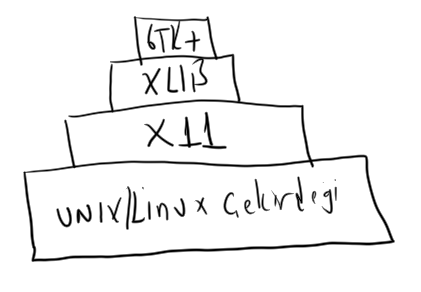 GTK+
XLIB
X11
UNIX/Linux Çekirdeği